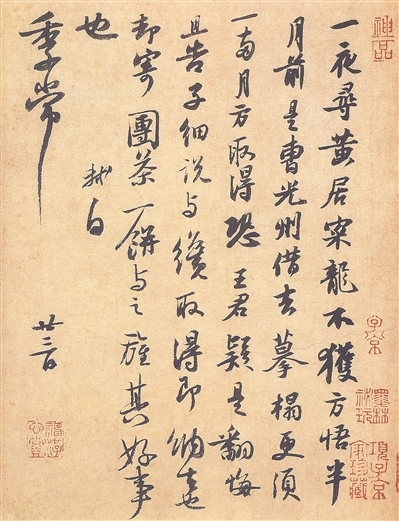 一夜尋黃居寀龍不獲方悟半
月前是曹光州借去摹搨更須
一兩月方取得恐王君疑是翻悔
且告子細說與纔取得即納去也
却寄團茶一餅與之旌其好事
也
軾白
季常
廿三日
神品
子京
墨林祕玩
項子京家珍藏